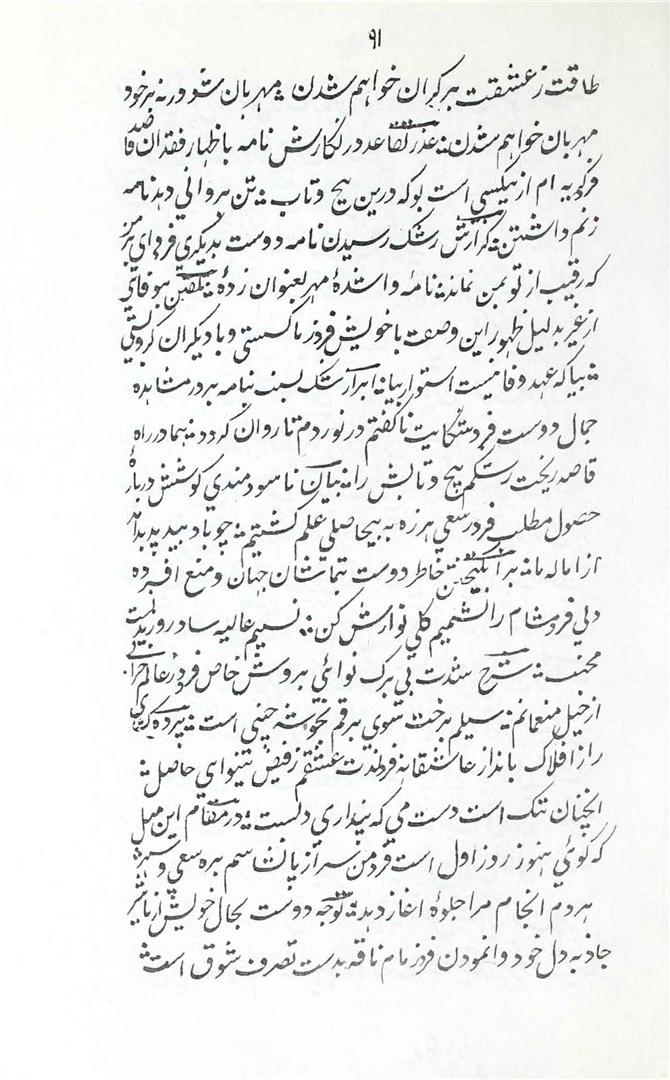 ۹۱
طاقت ز عشقت بر کران خواهم شدن ؞ مهربان شو ورنه بر خود
مهربان خواهم شدن ؞ عذر تقاعد در نگارش نامه باظهار فقدان قاصد
فرد گریه ام از بیکسی است بو که درین پیچ و تاب ؞ تن بروانی دهد نامه
زنم داشتن ؞ گزارش رشک رسیدن نامه دوست بدیگری فرد ای
که رقیب از تو بمن نماند ؞ نامهٔ واشدهٔ مهر بعنوان زدهٔ بیوفائی
از غیر بدلیل ظهور این وصف با خویش فرد ز ما گسستی و با دیگران گرو بستی
؞ بیا که عهد وفا نیست استوار بیا ؞ ابراز رشک بسبب نامه بر در مشاهده
جمال دوست فرد شکایت نا گفتم در نوردم تا روان گردد ؞ بما در راه
قاصد ریخت رشکم پیچ و تابش را ؞ بیان ناسودمندی کوشش دربارهٔ
حصول مطلب فرد سعی هرزه به بیحاصلی علم گشتیم ؞ چو باد بید پدید آمد
از اماله ما ؞ برانگیختن خاطر دوست بتماشای جهان و منع افسرده
دلی فرد مشام را بشمیم گلی نوازش کن ؞ نسیم غالیه سا در
محنت ؞ شرح شدت بی برگ نوائی بروش خاص فرد در عالم خرابی
از خیل منعمانم ؞ سیلم برخت شوی برقم بخوشه چینی است ؞ پرده گری
راز افلاک بانداز عاشقانه فرد لذت عشقم ز فیض بینوای حاصل ؞
آنچنان تنگ است دست من که پنداری دلست ؞ در مقام این مثل
که گوئی هنوز روز اول است فرد من سر از پا نشناسم بره سعی و سپهر
هر دم انجام مرا جلوهٔ آغاز دهد ؞ توجه دوست بحال خویش از تاثیر
جاذبه دل خود وانمودن فرد زمام ناقه بدست تصرف شوق است ؞